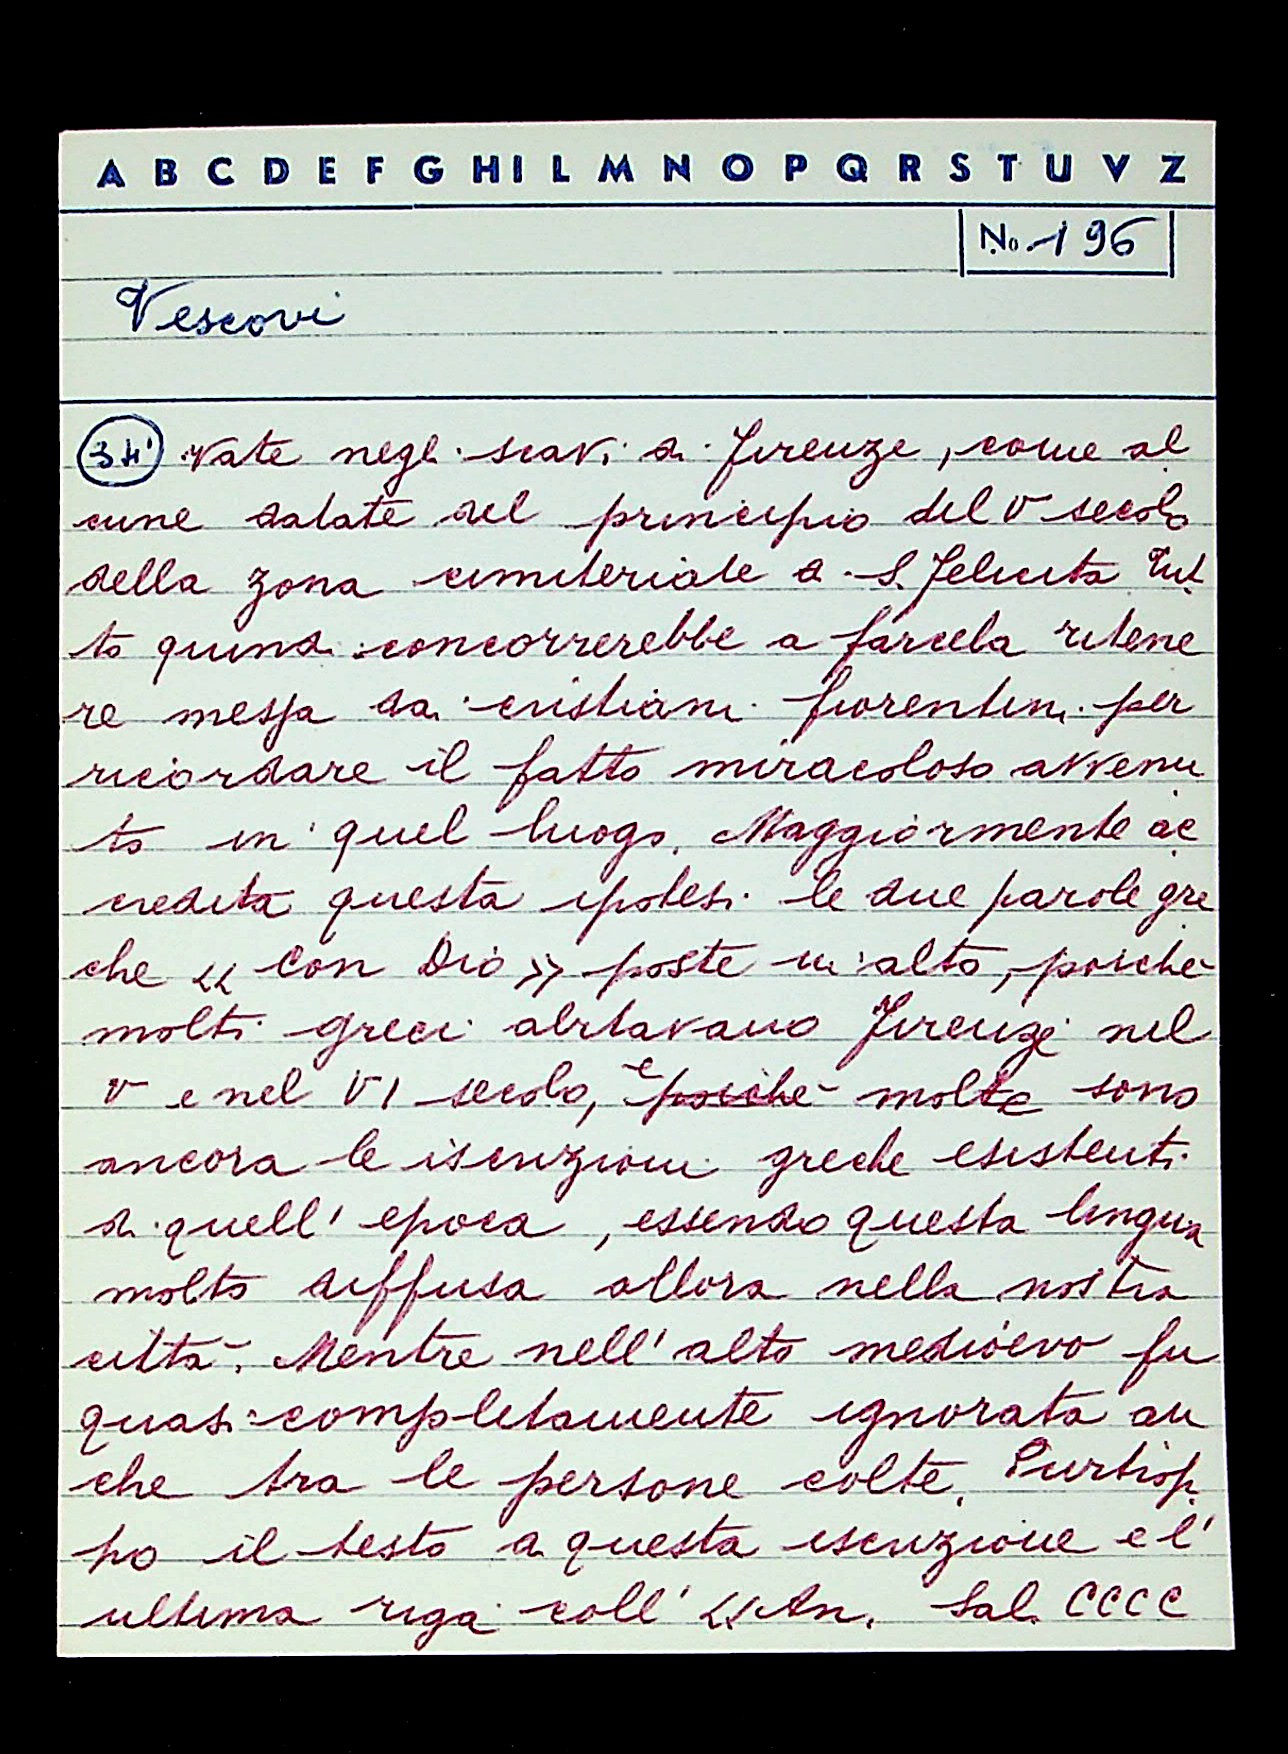 A B C D E F G H I L M N O P Q R S T U V Z
No. 196
Vescovi
34' vate negli scavi di Firenze, come al
cune datate del principio del V secolo
della zona cimiteriale di S. Felicita Tut
to quindi concorrerebbe a farcela ritene
re messa da cristiani fiorentini per
ricordare il fatto miracoloso avvenu
to in quel luogo. Maggiormente ac
credita questa ipotesi le due parole gre
che << Con Dio >> poste in alto, poichè
molti greci abitavano Firenze nel
V e nel VI secolo, e poichè molte sono
ancora le iscrizioni greche esistenti
di quell' epoca, essendo questa lingua
molto diffusa allora nella nostra
città. Mentre nell' alto medioevo fu
quasi completamente ignorata an
che tra le persone colte. Purtrop
po il testo di questa iscrizione e l'
ultima riga coll' << An. Sal. CCCC